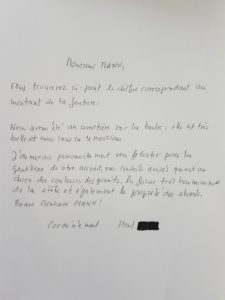 Monsieur MANIN,
Vous trouverez ci-joint le chèque correspondant au
montant de la facture.
Nous avons été au cimetière voir la tombe : elle est très
belle et nous vous en remercions.
J'aimerais personnellement vous féliciter pour la
gentillesse de votre accueil, vos conseils avisés quant au
choix des couleurs des granits, la forme très harmonieuse
de la stèle et également la propreté des abords.
Bravo Monsieur MANIN !
Cordialement Paul